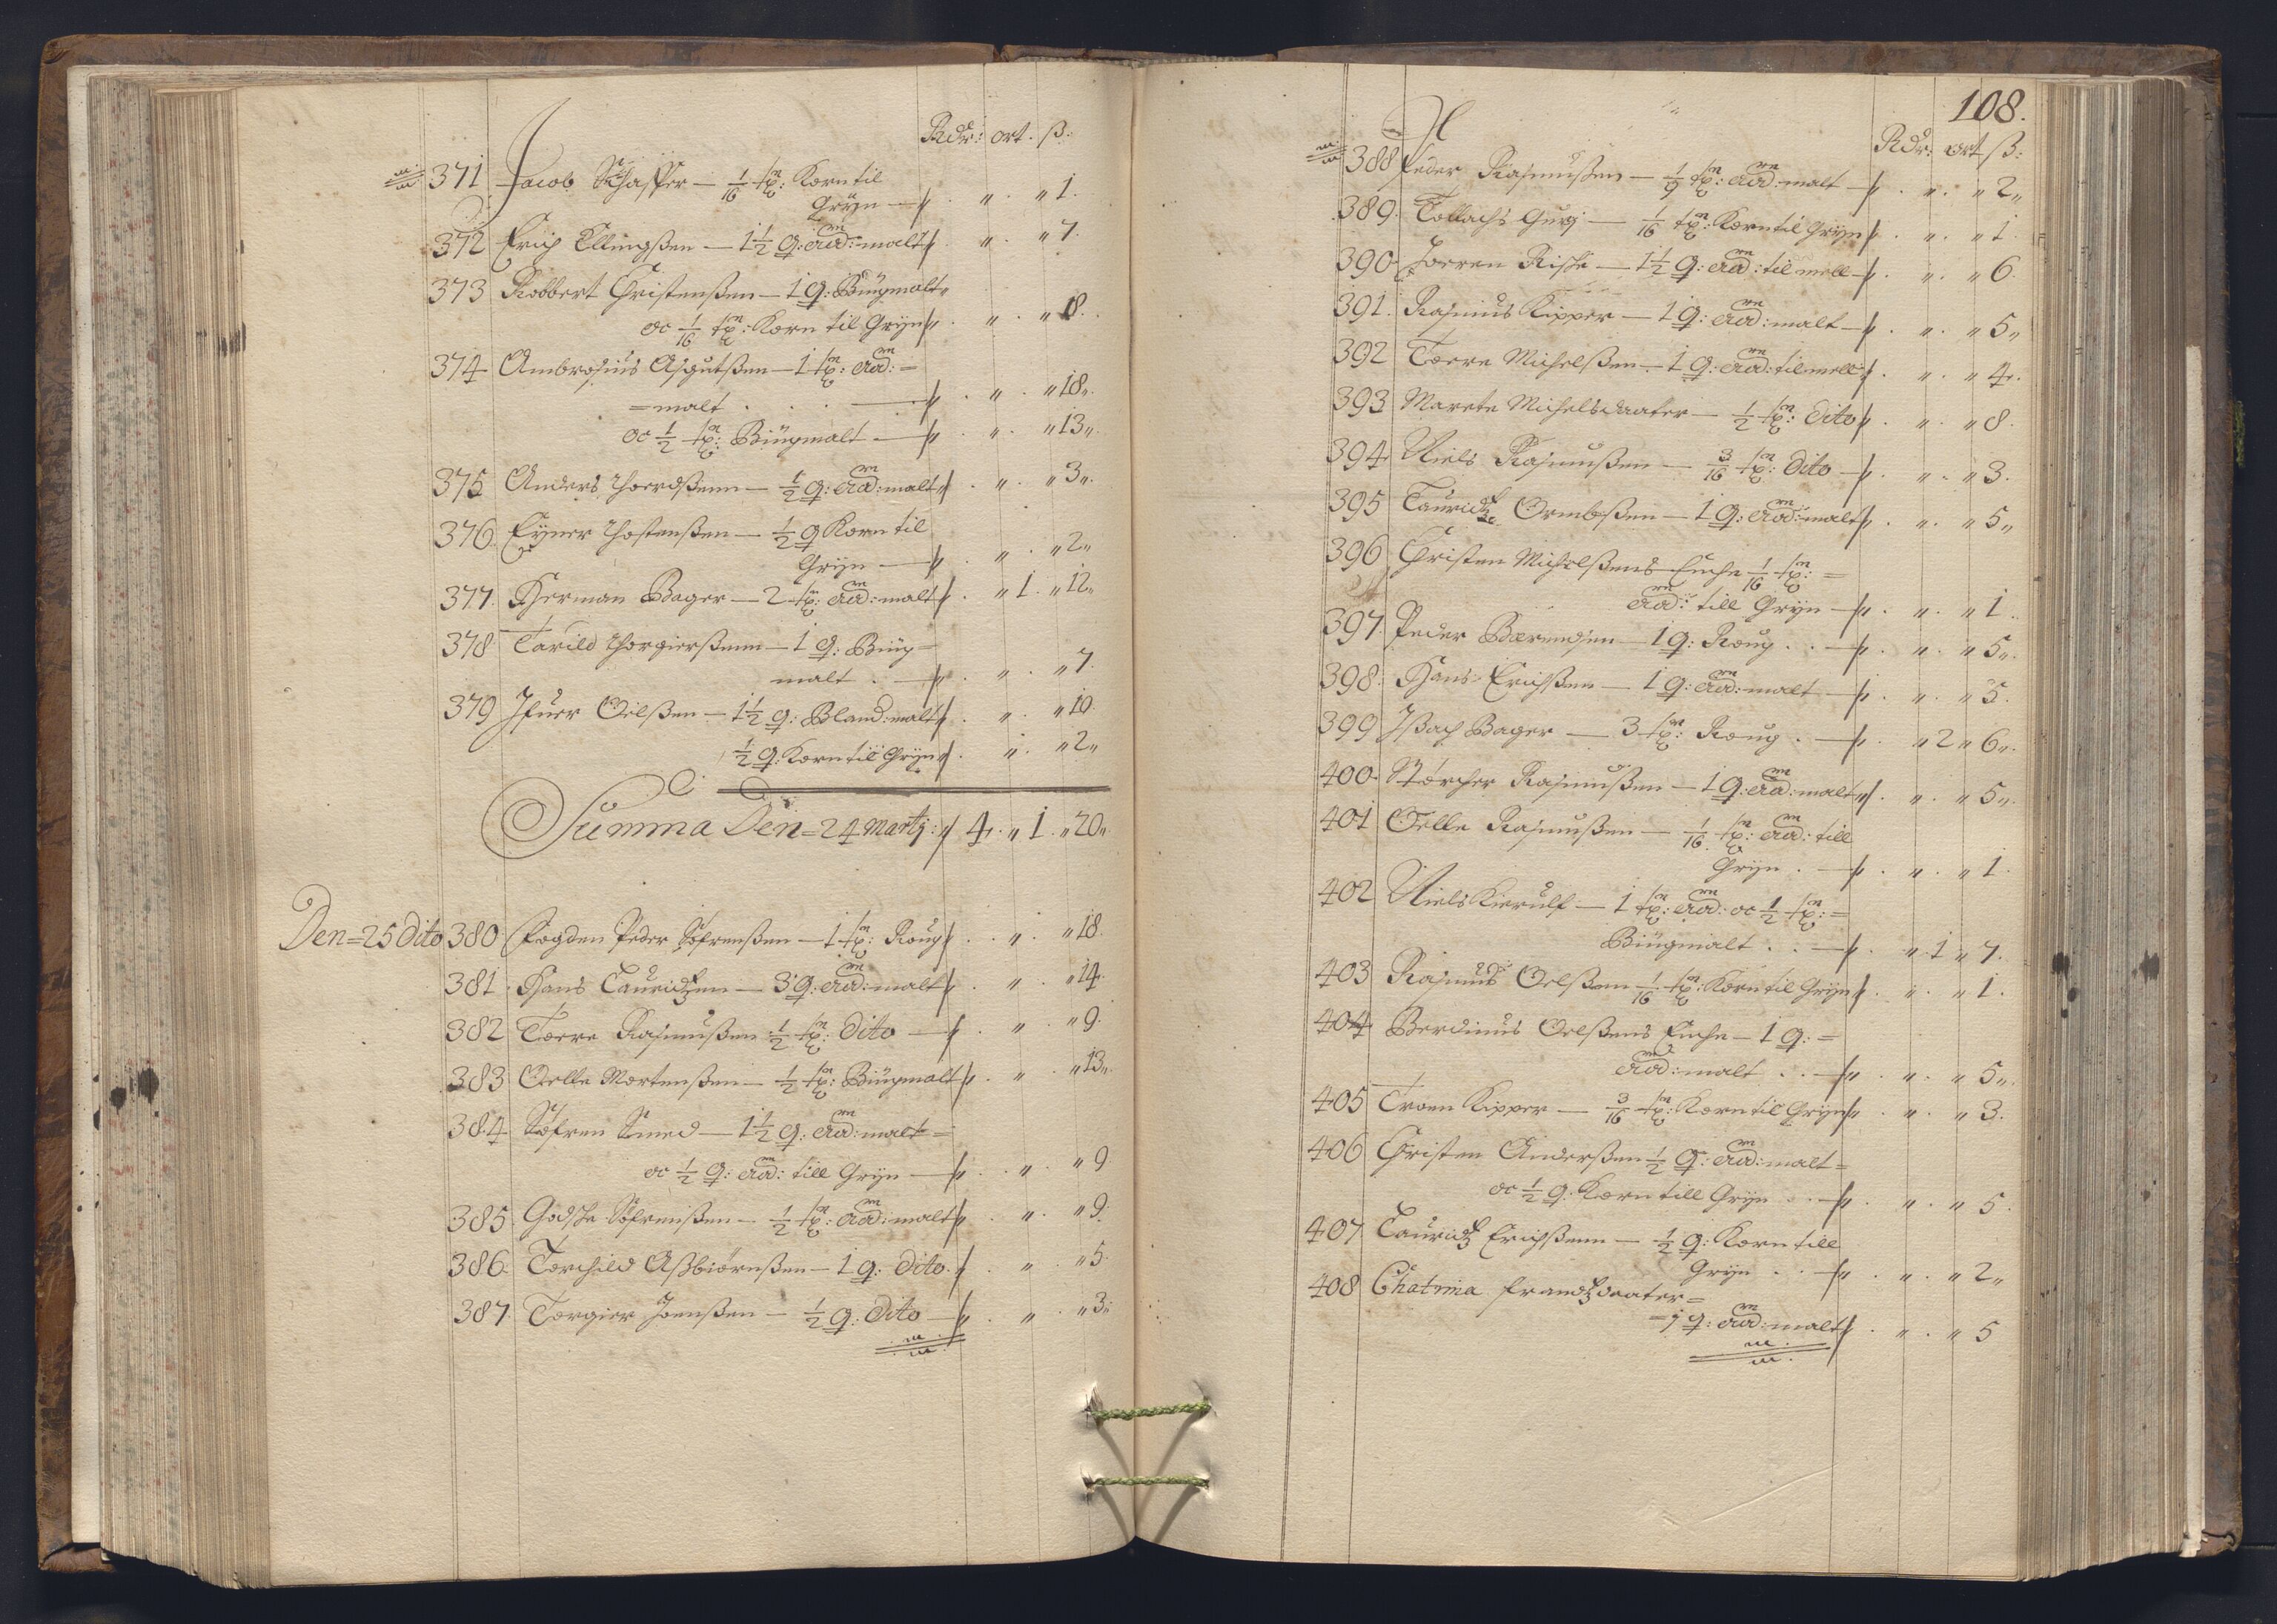 Rdr: ort. ß:
371 Jacob Schaffer — 1/16 tø: Korn til
Grÿn — " . " 1.
372 Erich Ellingßen — 1 1/2 q: : malt . " . " 7.
373 Robbert Christenßen — 1 q: Biügmalt
oc 1/16 tø: Korn til Grÿn . " . " 8.
374 Ambrosius Asgutßen — 1 tø: =
= malt . . . — . " . " 18.
oc 1/2 tø: Biügmalt — . " . " 13.
375 Anders — 1/2 q: : malt . " . " 3.
376 Eÿner — 1/2 q Korn til
Grÿn — . " . " 2
377. Herman Bager — 2 tø: : malt . " 1. " 12
378 Tarild — 1 q: Biüg=
malt . — . " . " 7.
379 Ifuer Oelßen — 1 1/2 q: Bland: malt . " . " 10.
1/2 q: Korn til Grÿn . " . " 2
Summa Den = 24 Martÿ: 4. " 1. " 20
Den = 25 Dito 380 Fogden Peder Söfrenßen — 1 tø: Roug . " . " 18.
381 Hans Lauridtzen — 3 q: : malt . " . " 14.
382 Torre Rasmußen 1/2 tø: Dito — . " . " 9.
383 Oelle Mortenßen — 1/2 tø: Biügmalt . " . " 13.
384 Söfren Smed — 1 1/2 q: : malt =
oc 1/2 q: : till Grÿn — . " . " 9
385. Söfrenßen — 1/2 tø: : malt . " . " 9.
386. Torchild Aßbiörnßen — 1 q: Dito . " . " 5.
387. Torgier Joenßen — 1/2 q: Dito — . " . " 3.
108.
Rdr: ort ß:
388 Peder Rasmußen — tø: : malt — . " . " 2
389. Tollachs — 1/16 tø: Korn til Grÿn . " . " 1.
390. Joeren — 1 1/2 q: : til mell — . " . " 6.
391. Rasmus Kipper — 1 q: : malt — . " . " 5
392 Torre Michelßen — 1 q: : til mell . " . " 4.
393 Marete Michelsdaater — 1/2 tø: Dito . " . " 8.
394 Niels Rasmußen — 3/16 tø: Dito — . " . " 3.
395 Lauridtz Ormbßen — 1 q: : malt . " . " 5
396 Christen Michelßens Enche 1/16 tø: =
: till Grÿn — . " . " 1.
397. Peder Berendsen — 1 q: Roug . . — . " . " 5.
398. Hans Erichßen — 1 q: : malt — . " . " 5.
399 Ißach Bager — 3 tø: Roug . — . " 2 " 6.
400. Störcher Rasmußen — 1 q: : malt . " . " 5.
401 Oelle Rasmußen — 1/16 tø: : till
Grÿn . — . " . " 1.
402 Niels Kierulf — 1 tø: : oc 1/2 tø: =
Biügmalt . . — . " 1 " 7.
403 Rasmus Oelßen 1/16 tø: Korn til Grÿn . " . " 1.
404 Berdinus Oelßens Enche — 1 q: =
: malt . . — . " . " 5.
405 Troen Kipper — 3/16 tø: Korn til Grÿn . " . " 3.
406 Christen Anderßen 1/2 q: : malt =
oc 1/2 q: Korn till Grÿn . . — . " . " 5.
407 Lauridtz Erichßenn — 1/2 q: Korn till
Grÿn . . — . " . " 2
408 Chatrina Frandtzdaater =
= 1 q: : malt . " . " 5